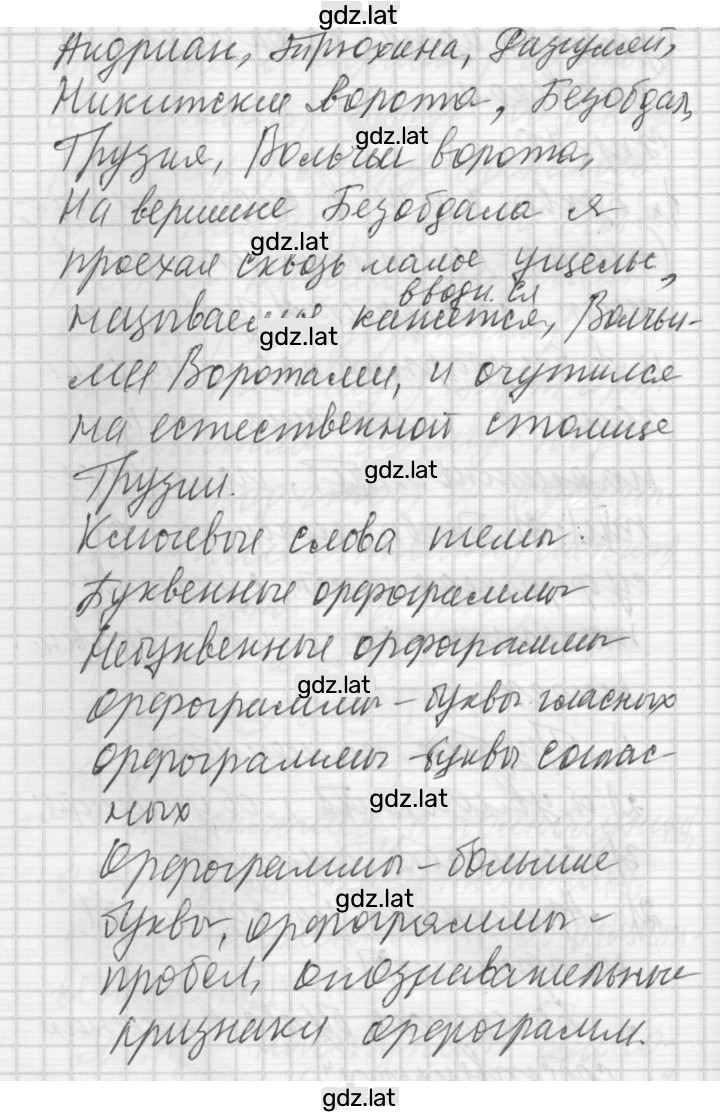 gdz.lat
Андриан, Прюхина, Разгуляй,
Никитские ворота, Безобдал,
gdz.lat
Грузия, Волчьи ворота,
На вершине Безобдала я
gdz.lat
проехал сквозь малое ущелье,
вводн. сл
называемое кажется, Волчьи-
gdz.lat
ми Воротами, и очутился
на естественной столице
gdz.lat
Грузии.
Ключевые слова темы:
Буквенные орфограммы
Небуквенные орфограммы
gdz.lat
Орфограммы - буквы гласных
Орфограммы - буквы соглас-
gdz.lat
ных
Орфограммы - большие
gdz.lat
буквы, орфограммы -
пробел, опознавательные
признаки орфограмм.
gdz.lat